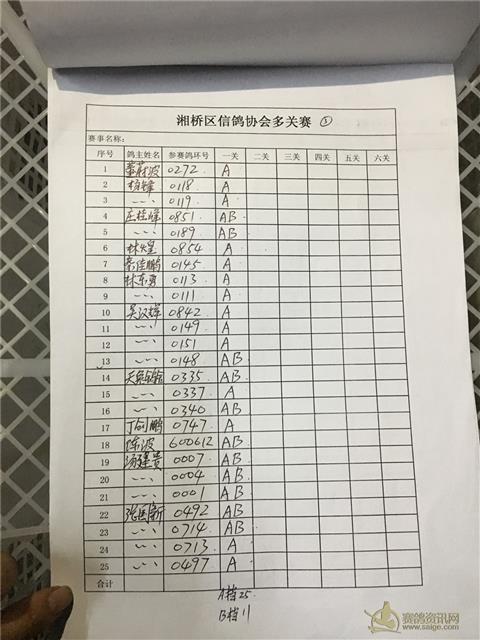 湘桥区信鸽协会多关赛 ③
赛事名称:
序号 鸽主姓名 参赛鸽环号 一关 二关 三关 四关 五关 六关
1 0272 A
2 杨锋 0118 A
3 〃 0119 A
4 庄桂峰 0851 AB
5 〃 0189 AB
6 林火皇 0854 A
7 佳鹏 0145 A
8 林东勇 0113 A
9 〃 0111 A
10 吴汉辉 0842 A
11 〃 0149 A
12 〃 0151 A
13 〃 0148 AB
14 0335 AB
15 〃 0337 A
16 〃 0340 AB
17 丁向鹏 0747 A
18 陈波 600612 AB
19 汤建贵 0007 AB
20 〃 0004 AB
21 〃 0001 AB
22 张国新 0492 AB
23 〃 0714 AB
24 〃 0713 A
25 〃 0497 A
合计
A档 25
B档 11
赛鸽资讯网
www.saige.com